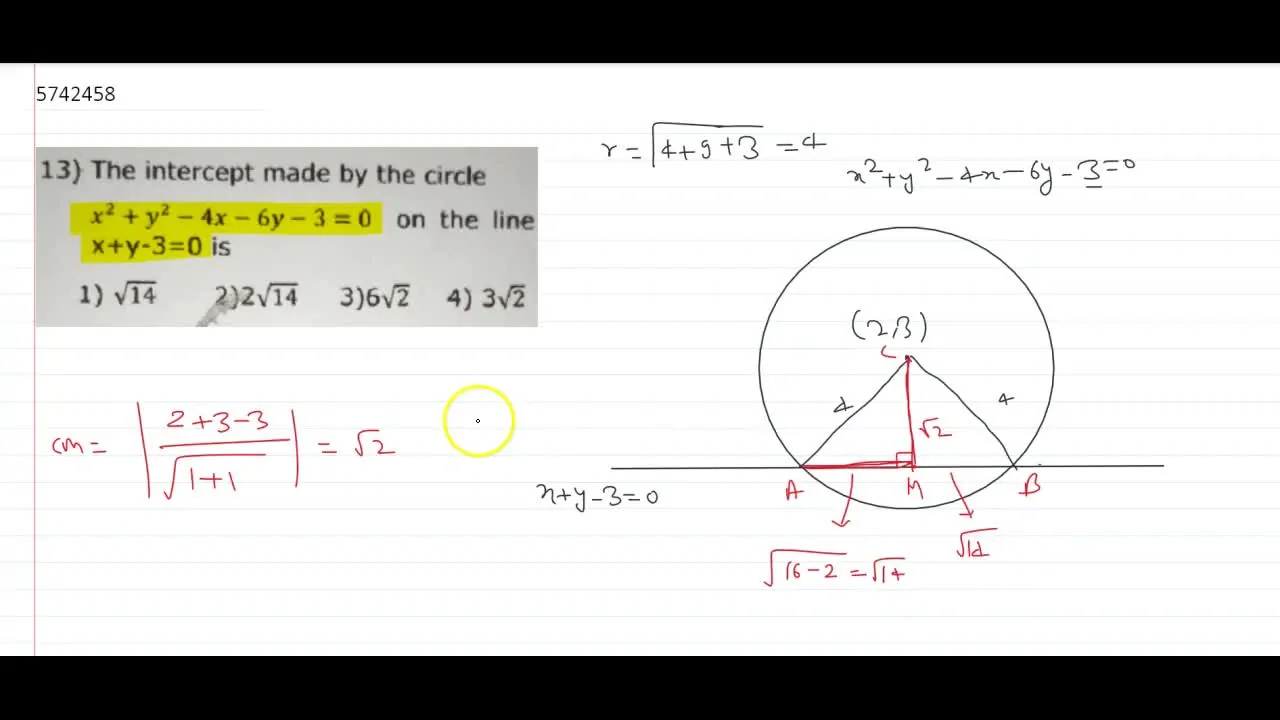 5742458
13) The intercept made by the circle
x² + y² − 4x − 6y − 3 = 0 on the line
x+y-3=0 is
1) √14 2)2√14 3)6√2 4) 3√2
r = √4+9+3 = 4
x²+y²−4x−6y−3=0
(2,3)
C
4 4
√2
CM = |2+3−3 / √1+1| = √2
x+y−3=0
A M B
√16−2 = √14
√14